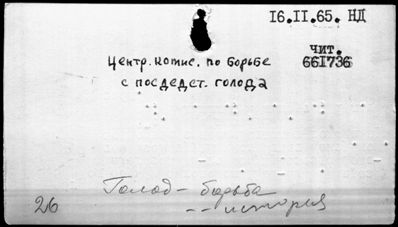 16.II.65. НД
чит.
661736
Центр. комис. по борьбе
с последст. голода
Голод – борьба
– – история
26